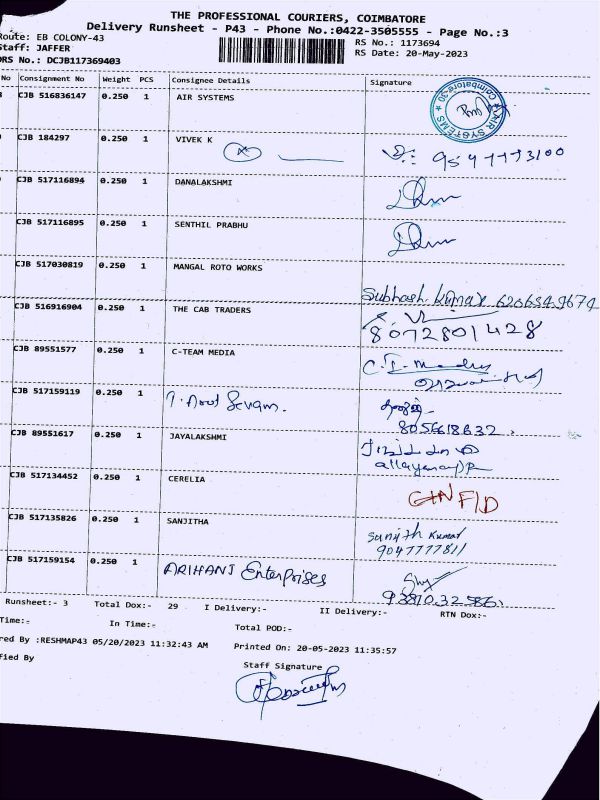 THE PROFESSIONAL COURIERS, COIMBATORE
Delivery Runsheet - P43 - Phone No.:0422-3505555 - Page No.:3
Route: EB COLONY-43
RS No.: 1173694
Staff: JAFFER
RS Date: 20-May-2023
DRS No.: DCJB117369403
No Consignment No Weight PCS Consignee Details Signature
CJB 516836147 0.250 1 AIR SYSTEMS
AIR SYSTEMS Coimbatore-30
CJB 184297 0.250 1 VIVEK K
CJB 517116894 0.250 1 DANALAKSHMI
CJB 517116895 0.250 1 SENTHIL PRABHU
CJB 517030819 0.250 1 MANGAL ROTO WORKS
Subhash Kumar
CJB 516916904 0.250 1 THE CAB TRADERS
8072801428
CJB 89551577 0.250 1 C-TEAM MEDIA
CJB 517159119 0.250 1
8056618632
CJB 89551617 0.250 1 JAYALAKSHMI
CJB 517134452 0.250 1 CERELIA
CJB 517135826 0.250 1 SANJITHA
Kumar
9047777811
CJB 517159154 0.250 1 ARIHANT Enterprises
Runsheet:- 3 Total Dox:- 29 I Delivery:- II Delivery:- RTN Dox:-
Time:- In Time:- Total POD:-
red By :RESHMAP43 05/20/2023 11:32:43 AM Printed On: 20-05-2023 11:35:57
fied By
Staff Signature